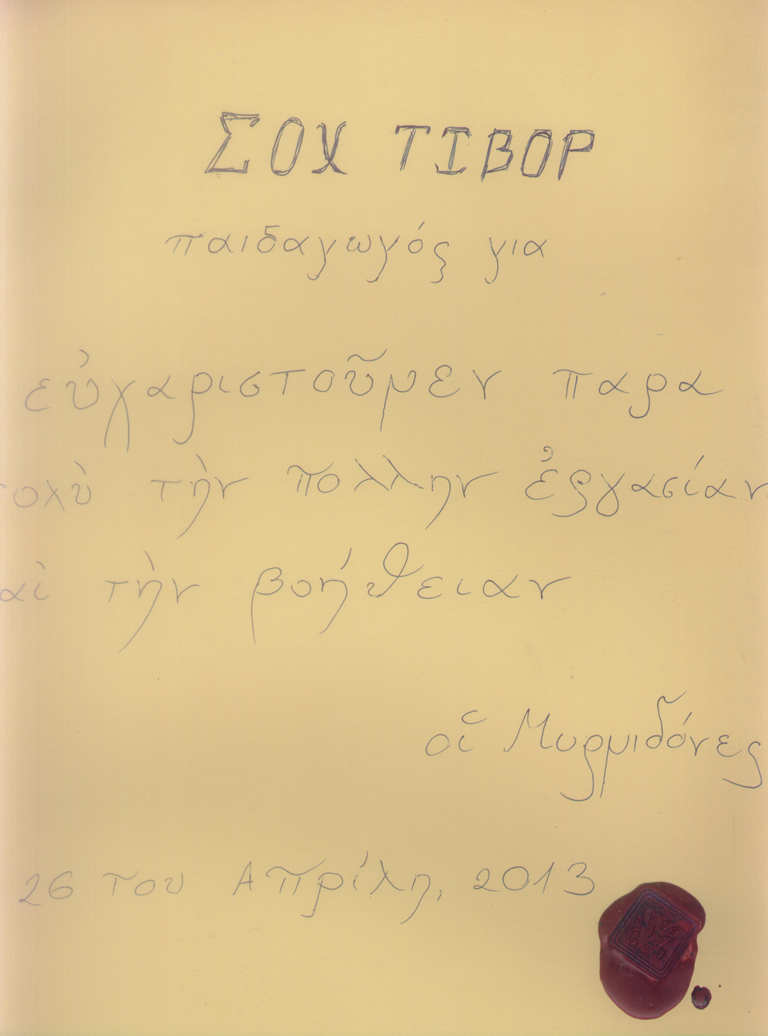 ΣΟΧ ΤΙΒΟΡ
παιδαγωγός για
εὐχαριστοῦμεν παρα
πολὺ τὴν πολλην ἐργασίαν
καὶ τὴν βοήθειαν
οἱ Μυρμιδόνες
26 του Απρίλη, 2013